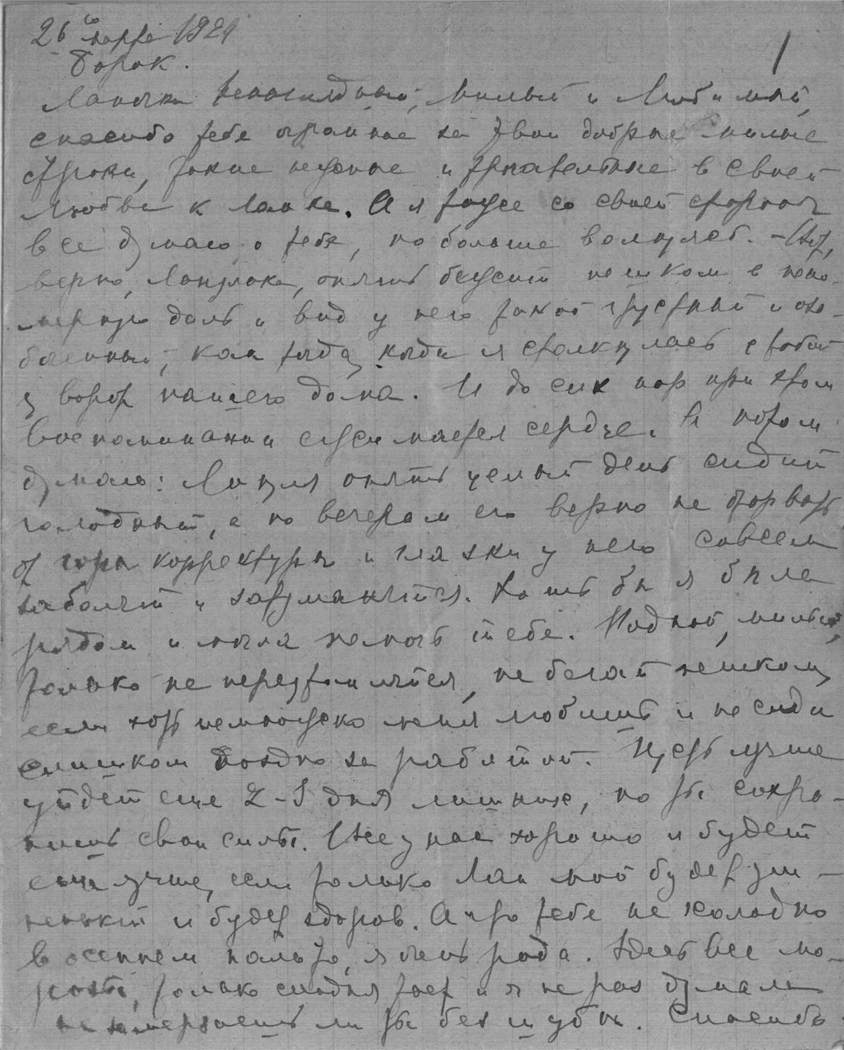 26 марта 1924
Борок.
1
Лапочка ненаглядный, милый и любимый,
спасибо тебе огромное за твои добрые милые
строки, такие нежные и трогательные в своей
любви к Лапке. А я тоже со своей стороны
все думаю о тебе, но больше волнуясь. —
верно, Лапулька, опять бегает пешком в непо-
мерную даль и вид у него такой грустный и оза-
боченный, как тогда, когда я столкнулась с тобой
у ворот нашего дома. И до сих пор при этом
воспоминании сжимается сердце. А потом
думаю: Лапуля опять целый день сидит
голодный, а по вечерам его верно не оторвать
от горы корректуры и глазки у него совсем
заболят и затуманятся. Хоть бы я была
рядом и могла помочь тебе. Родной, милый,
только не переутомляйся, не бегай пешком,
если хоть немножечко меня любишь и не сиди
слишком поздно за работой. Пусть лучше
уйдет еще 2-3 дня лишних, но ты сохра-
нишь свои силы. Все у нас хорошо и будет
еще лучше, если только Лап мой будет ум-
ненький и будет здоров. А что тебе не холодно
в осеннем пальто, я очень рада. Здесь все мо-
розы, только сегодня тает и я не раз думала
не замерзаешь ли ты без шубы. Спасибо